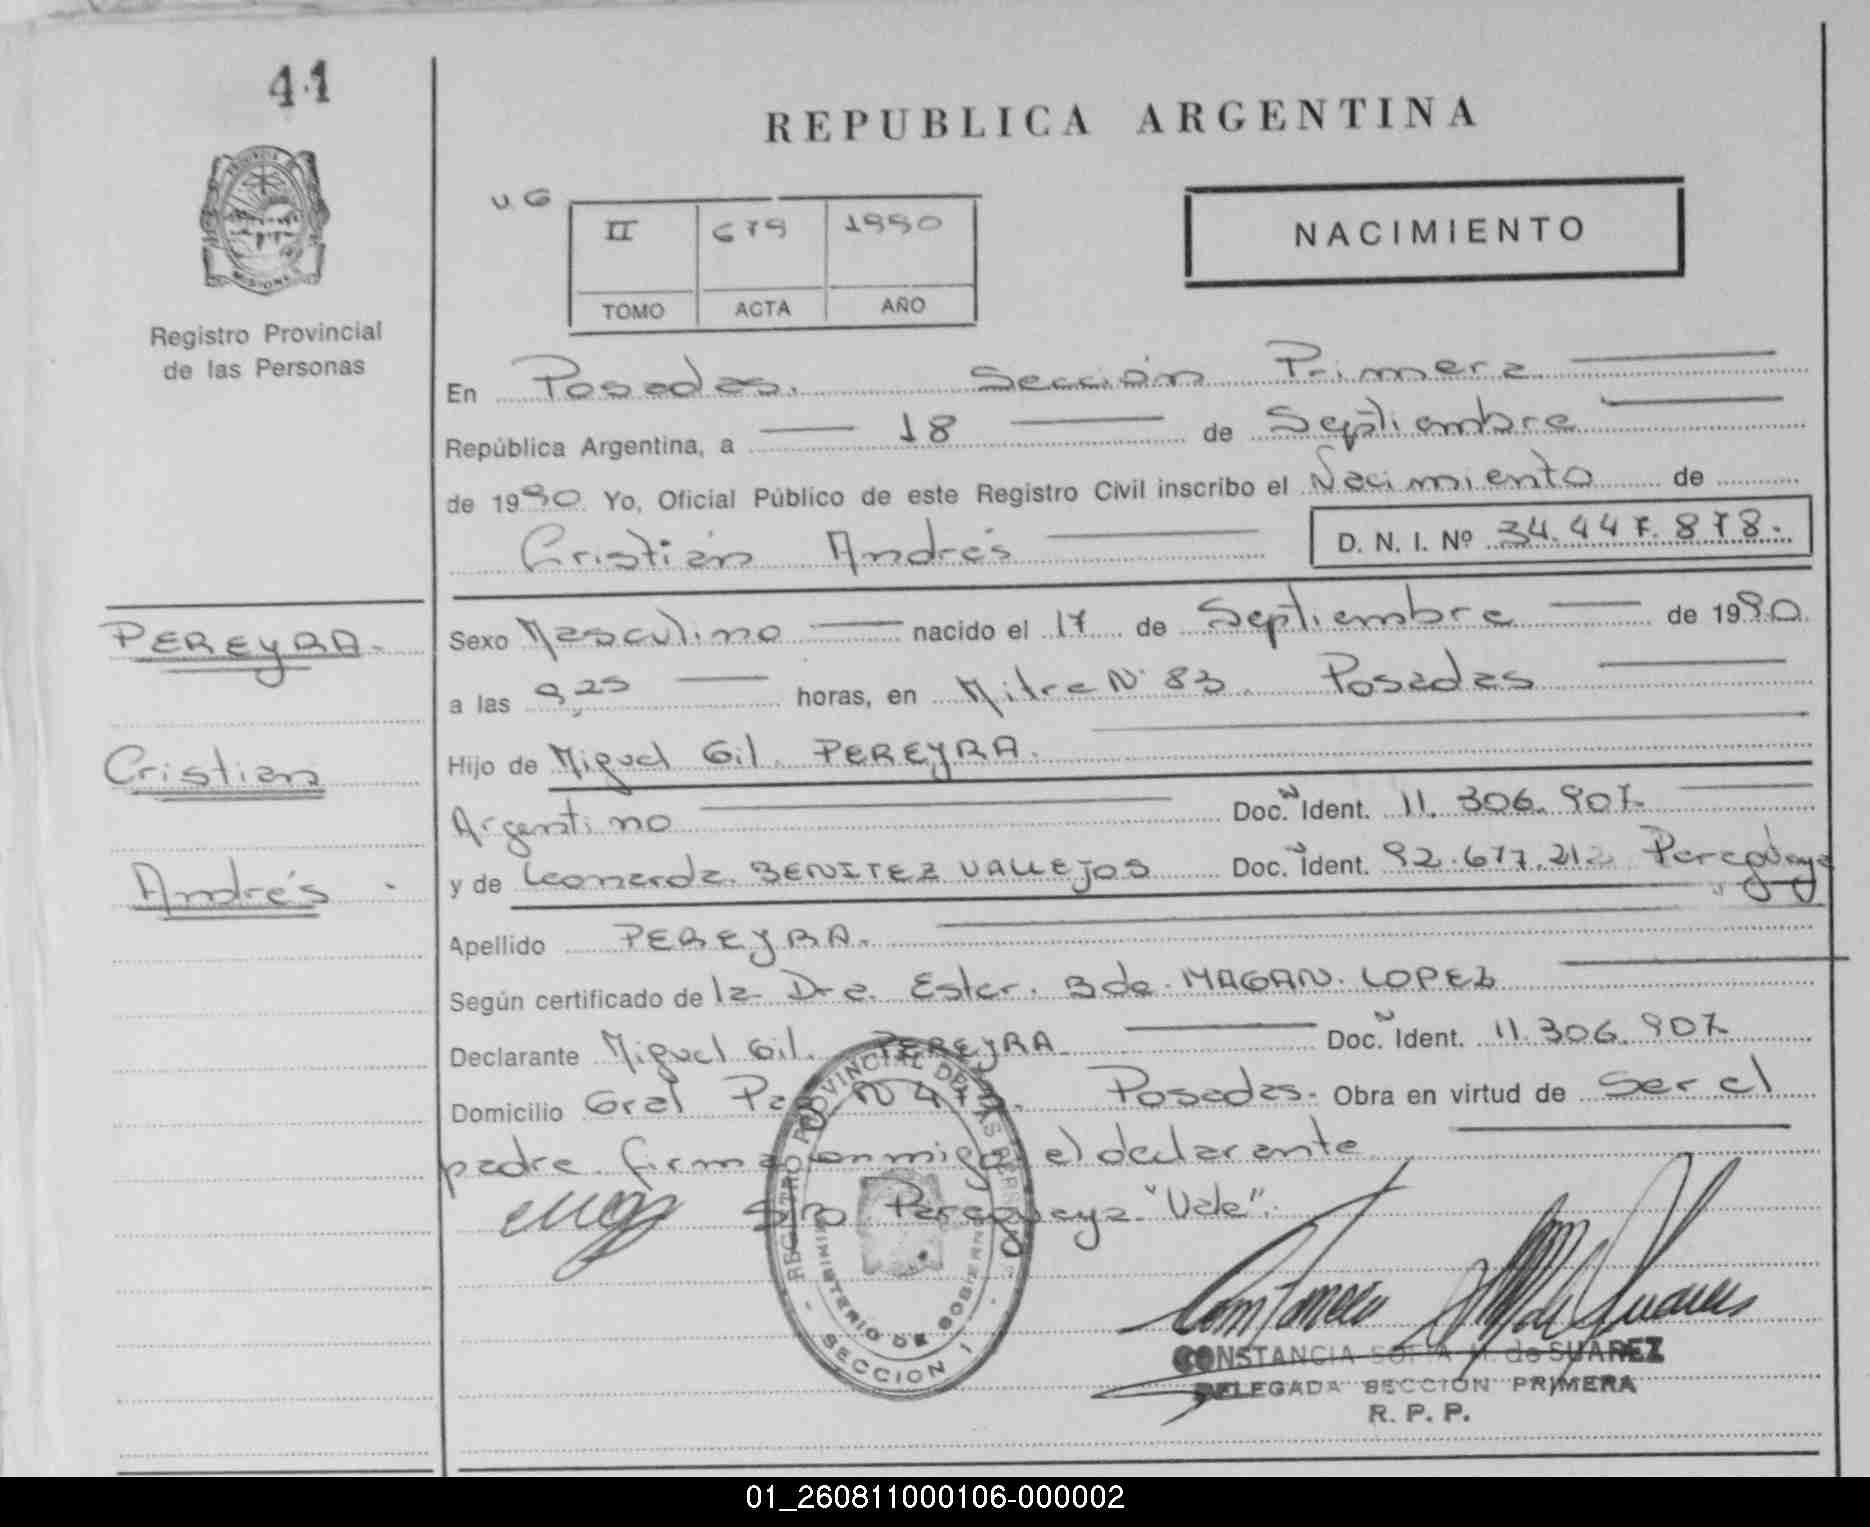 41
REPUBLICA ARGENTINA
PROVINCIA DE
MISIONES
Registro Provincial
de las Personas
U.G
II 679 1990
TOMO ACTA AÑO
NACIMIENTO
En Posadas. Sección Primera
República Argentina, a 18 de Septiembre
de 1990 Yo, Oficial Público de este Registro Civil inscribo el Nacimiento de
Cristian Andrés D. N. I. Nº 34.447.878.
PEREYRA.
Cristian
Andrés
Sexo Masculino nacido el 17 de Septiembre de 1990
a las 9,25 horas, en Mitre Nº 83 Posadas
Hijo de Miguel Gil PEREYRA.
Argentino Doc. Ident. 11.306.907
y de Leonarda BENITEZ VALLEJOS Doc. Ident. 92.677.212 Paraguaya
Apellido PEREYRA.
Según certificado de la Dra. Ester. B de MAGAN LOPEZ
Declarante Miguel Gil. PEREYRA Doc. Ident. 11.306.907
Domicilio Gral Paz Nº Posadas. Obra en virtud de ser el
padre firma conmigo el declarante
S/R Paraguaya "Vale".
REGISTRO PROVINCIAL DE LAS PERSONAS
MINISTERIO DE GOBIERNO
SECCION 1
CONSTANCIA SOFIA M. de SUAREZ
DELEGADA SECCION PRIMERA
R. P. P.
01_260811000106-000002